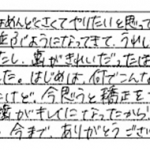 はめんどくさくてやりたいと思って
並ぶようになってきて、うれし
たし、歯がきれいだったは
た。はじめは、何でこんな
たけど、今思うと矯正を
歯がキレイになったから
、今まで、ありがとうござい